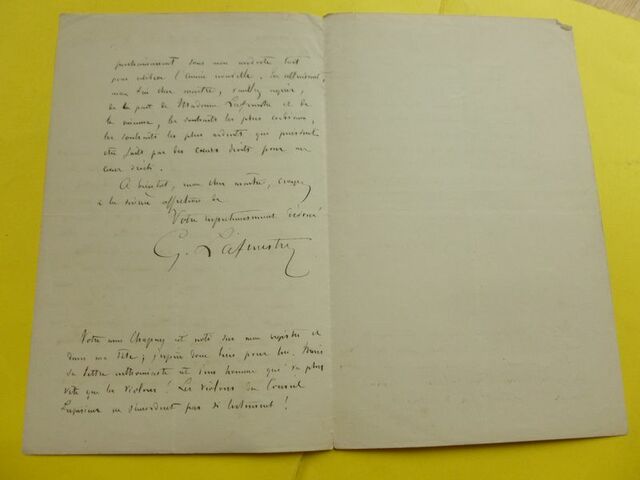 sous mon modeste toit
pour célébrer l'année nouvelle. En attendant,
mon cher maître, veuillez agréer,
de la part de Madame Lafenestre et de
la mienne, les souhaits les plus cordiaux,
les souhaits les plus ardents que puissent
être faits par des cœurs droits pour un
cœur droit.
A bientôt, mon cher maître, croyez
à la sincère affection de
Votre respectueusement dévoué
G. Lafenestre
Votre ami est noté sur mon registre et
dans ma tête ; j'espère donc bien pour lui. Mais
sa lettre est d'un homme qui va plus
vite que les violons ! Les violons du Conseil
Supérieur ne s'accordent pas si lestement !